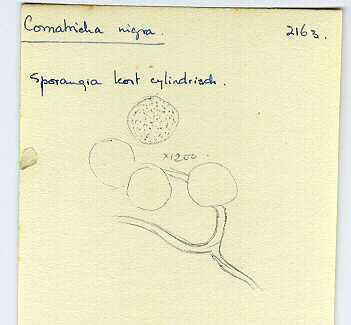 Comatricha nigra.
2163.
Sporangia kort cylindrisch.
×1200